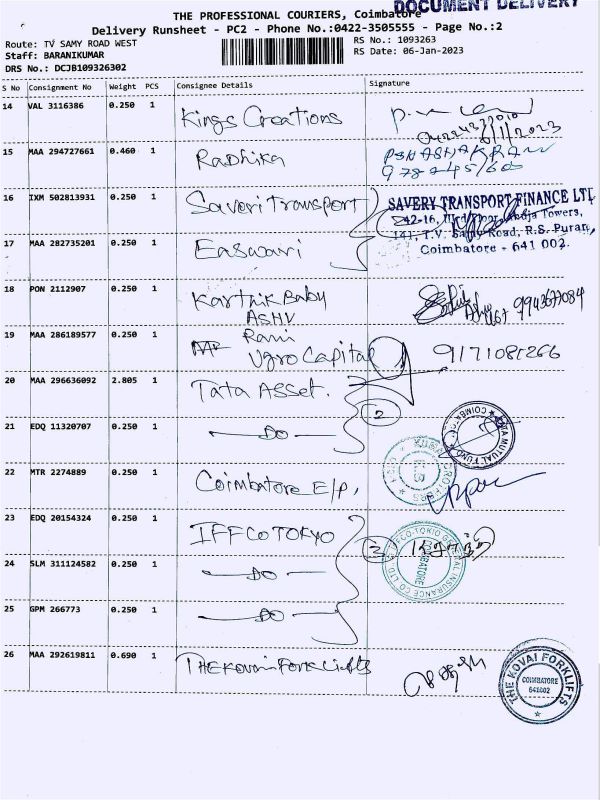 DOCUMENT DELIVERY
THE PROFESSIONAL COURIERS, Coimbatore
Delivery Runsheet - PC2 - Phone No.:0422-3505555 - Page No.:2
Route: TV SAMY ROAD WEST
Staff: BARANIKUMAR
DRS No.: DCJB109326302
RS No.: 1093263
RS Date: 06-Jan-2023
S No Consignment No Weight PCS Consignee Details Signature
14 VAL 3116386 0.250 1 Kings Creations
15 MAA 294727661 0.460 1 Radhika
16 IXM 502813931 0.250 1 Saveri Transport
SAVERY TRANSPORT FINANCE LTD
Towers,
141, T.V. Samy Road, R.S. Puram,
Coimbatore - 641 002.
17 MAA 282735201 0.250 1 Easwari
18 PON 2112907 0.250 1 Karthik Baby
ASHV
9943677084
19 MAA 286189577 0.250 1 Rani
Ugro Capital 9171081266
20 MAA 296636092 2.805 1 Tata Asset.
2
21 EDQ 11320707 0.250 1 - DO -
TATA MUTUAL FUND COIMBATORE
22 MTR 2274889 0.250 1 Coimbatore E/P,
23 EDQ 20154324 0.250 1 IFFCO TOKYO
3
IFFCO-TOKIO GENERAL INSURANCE CO LTD.
COIMBATORE
24 SLM 311124582 0.250 1 - DO -
25 GPM 266773 0.250 1 - DO -
26 MAA 292619811 0.690 1 THE Kovai Fork Lifts
THE KOVAI FORKLIFTS
COIMBATORE
641002